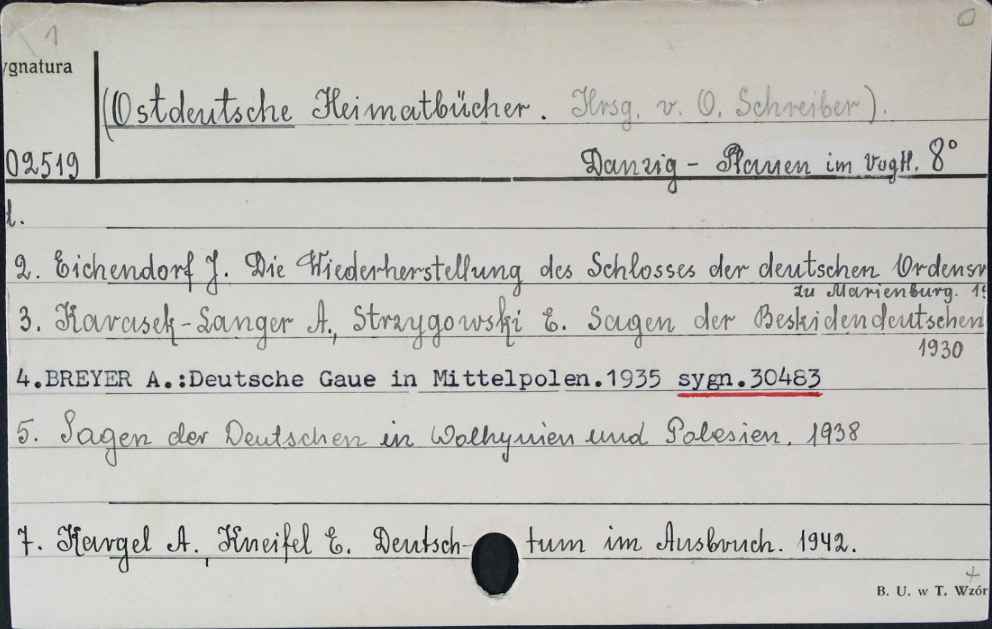 1
ygnatura
(Ostdeutsche Heimatbücher. Hrsg. v. O. Schreiber).
02519
Danzig – Plauen im Vogtl. 8°
1.
2. Eichendorf J. Die Wiederherstellung des Schlosses der deutschen Ordensr
zu Marienburg. 19
3. Karasek-Langer A., Strzygowski E. Sagen der Beskidendeutschen
1930
4.BREYER A.:Deutsche Gaue in Mittelpolen.1935 sygn.30483
5. Sagen der Deutschen in Wolhynien und Polesien. 1938
7. Kargel A., Kneifel E. Deutsch- tum im Ausbruch. 1942.
B. U. w T. Wzór